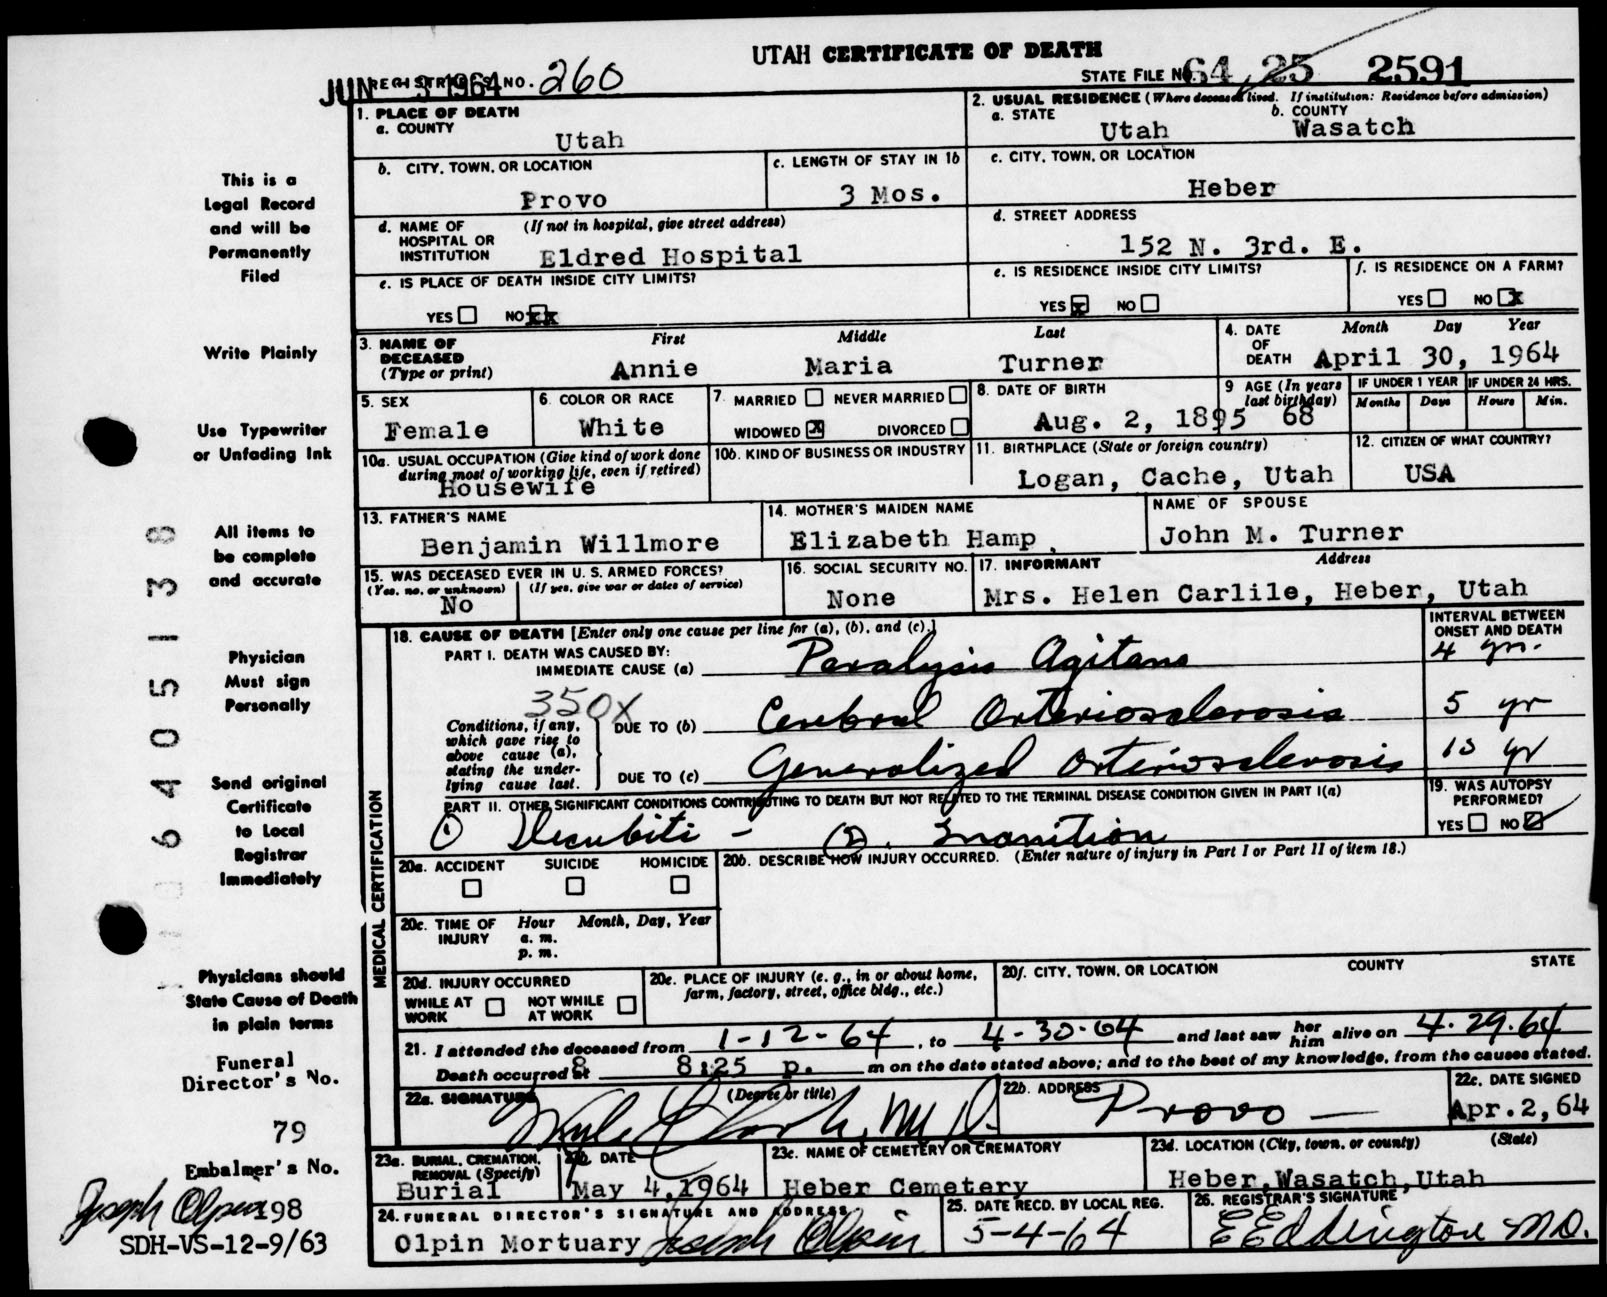 UTAH CERTIFICATE OF DEATH
JUN 3 1964 REGISTRAR'S NO. 260 STATE FILE NO. 64 25 2591
1. PLACE OF DEATH
a. COUNTY Utah
2. USUAL RESIDENCE (Where deceased lived. If institution: Residence before admission)
a. STATE Utah b. COUNTY Wasatch
b. CITY, TOWN, OR LOCATION Provo
c. LENGTH OF STAY IN 1b 3 Mos.
c. CITY, TOWN, OR LOCATION Heber
d. NAME OF HOSPITAL OR INSTITUTION (If not in hospital, give street address) Eldred Hospital
d. STREET ADDRESS 152 N. 3rd. E.
e. IS PLACE OF DEATH INSIDE CITY LIMITS? YES NO xx
e. IS RESIDENCE INSIDE CITY LIMITS? YES x NO
f. IS RESIDENCE ON A FARM? YES NO x
3. NAME OF DECEASED (Type or print) First Annie Middle Maria Last Turner
4. DATE OF DEATH Month Day Year April 30, 1964
5. SEX Female
6. COLOR OR RACE White
7. MARRIED NEVER MARRIED WIDOWED x DIVORCED
8. DATE OF BIRTH Aug. 2, 1895
9 AGE (In years last birthday) 68
IF UNDER 1 YEAR Months Days
IF UNDER 24 HRS. Hours Min.
10a. USUAL OCCUPATION (Give kind of work done during most of working life, even if retired) Housewife
10b. KIND OF BUSINESS OR INDUSTRY
11. BIRTHPLACE (State or foreign country) Logan, Cache, Utah
12. CITIZEN OF WHAT COUNTRY? USA
13. FATHER'S NAME Benjamin Willmore
14. MOTHER'S MAIDEN NAME Elizabeth Hamp
NAME OF SPOUSE John M. Turner
15. WAS DECEASED EVER IN U. S. ARMED FORCES? (Yes, no, or unknown) No (If yes, give war or dates of service)
16. SOCIAL SECURITY NO. None
17. INFORMANT Address Mrs. Helen Carlile, Heber, Utah
MEDICAL CERTIFICATION
18. CAUSE OF DEATH [Enter only one cause per line for (a), (b), and (c).]
INTERVAL BETWEEN ONSET AND DEATH
PART I. DEATH WAS CAUSED BY:
IMMEDIATE CAUSE (a) Paralysis Agitans 4 yr.
350X
Conditions, if any, which gave rise to above cause (a), stating the underlying cause last.
DUE TO (b) Cerebral Arteriosclerosis 5 yr
DUE TO (c) Generalized Arteriosclerosis 15 yr
PART II. OTHER SIGNIFICANT CONDITIONS CONTRIBUTING TO DEATH BUT NOT RELATED TO THE TERMINAL DISEASE CONDITION GIVEN IN PART I(a)
(1) Decubiti - (2). Inanition
19. WAS AUTOPSY PERFORMED? YES NO
20a. ACCIDENT SUICIDE HOMICIDE
20b. DESCRIBE HOW INJURY OCCURRED. (Enter nature of injury in Part I or Part II of item 18.)
20c. TIME OF INJURY Hour Month, Day, Year
a. m.
p. m.
20d. INJURY OCCURRED WHILE AT WORK NOT WHILE AT WORK
20e. PLACE OF INJURY (e. g., in or about home, farm, factory, street, office bldg., etc.)
20f. CITY, TOWN, OR LOCATION COUNTY STATE
21. I attended the deceased from 1-12-64, to 4-30-64 and last saw her him alive on 4.29.64
Death occurred at 8 8:25 p. m on the date stated above; and to the best of my knowledge, from the causes stated.
22a. SIGNATURE (Degree or title) M D.
22b. ADDRESS Provo
22c. DATE SIGNED Apr.2,64
23a. BURIAL, CREMATION, REMOVAL (Specify) Burial
23b. DATE May 4,1964
23c. NAME OF CEMETERY OR CREMATORY Heber Cemetery
23d. LOCATION (City, town, or county) (State) Heber,Wasatch,Utah
24. FUNERAL DIRECTOR'S SIGNATURE AND ADDRESS Olpin Mortuary Joseph Olpin
25. DATE RECD. BY LOCAL REG. 5-4-64
26. REGISTRAR'S SIGNATURE E E Eddington M D.
This is a
Legal Record
and will be
Permanently
Filed
Write Plainly
Use Typewriter
or Unfading Ink
All items to
be complete
and accurate
Physician
Must sign
Personally
Send original
Certificate
to Local
Registrar
Immediately
Physicians should
State Cause of Death
in plain terms
Funeral
Director's No.
79
Embalmer's No.
Joseph Olpin 198
SDH-VS-12-9/63